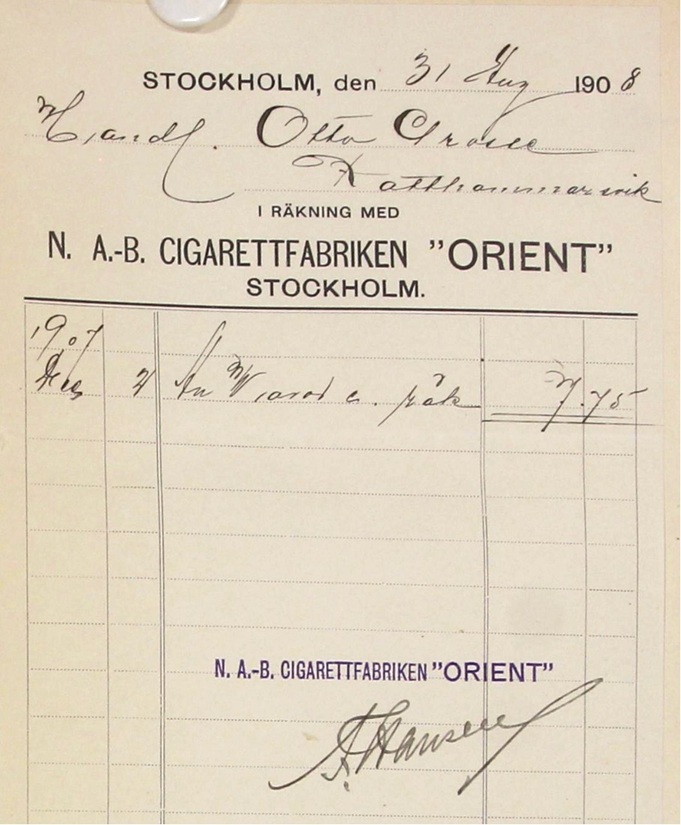 STOCKHOLM, den 31 Aug 1908
Handl. Otto Grosse
Katthammarsvik
I RÄKNING MED
N. A.-B. CIGARETTFABRIKEN "ORIENT"
STOCKHOLM.
1907
2 An Varor e. räk 7.75
N. A.-B. CIGARETTFABRIKEN "ORIENT"
A. Hansen